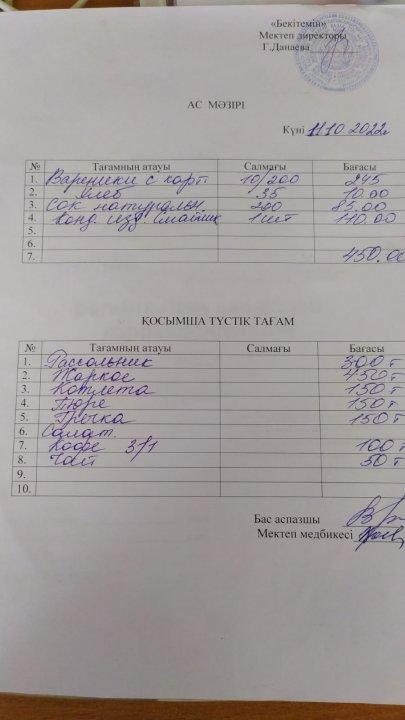 «Бекітемін»
Мектеп директоры
Г.Данаева
АС МӘЗІРІ
Күні 11.10.2022г
№ Тағамның атауы Салмағы Бағасы
1. Вареники с карт. 10/200 245
2. Хлеб 35 10.00
3. Сок натуральн. 200 85.00
4. Конд. изд. Смайлик 1 шт 110.00
5.
6.
7. 450.00
ҚОСЫМША ТҮСТІК ТАҒАМ
№ Тағамның атауы Салмағы Бағасы
1. Рассольник 300 т
2. Жаркое 450 т
3. Котлета 150 т
4. Пюре 150 т
5. Гречка 150 т
6. Салат.
7. Кофе 3/1 100 т
8. Чай 50 т
9.
10.
Бас аспазшы
Мектеп медбикесі